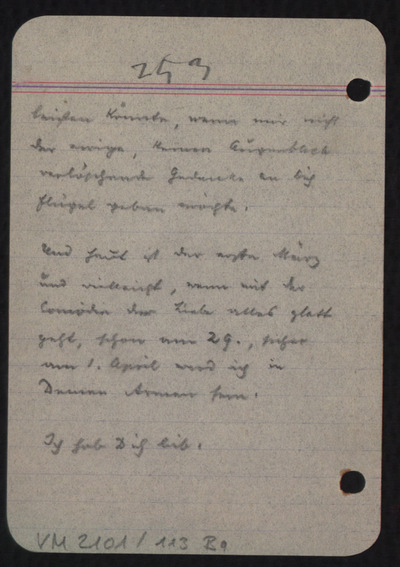 253
leisten könnte, wenn mir nicht
der ewige, keinen Augenblick
verlöschende Gedanke an Dich
Flügel geben möchte.
Und heut ist der erste März
und vielleicht, wenn mit der
Comödie der Liebe alles glatt
geht, schon am 29., sicher
am 1. April werd ich in
Deinen Armen sein.
Ich hab Dich lib.
VM 2101 / 113 Ba